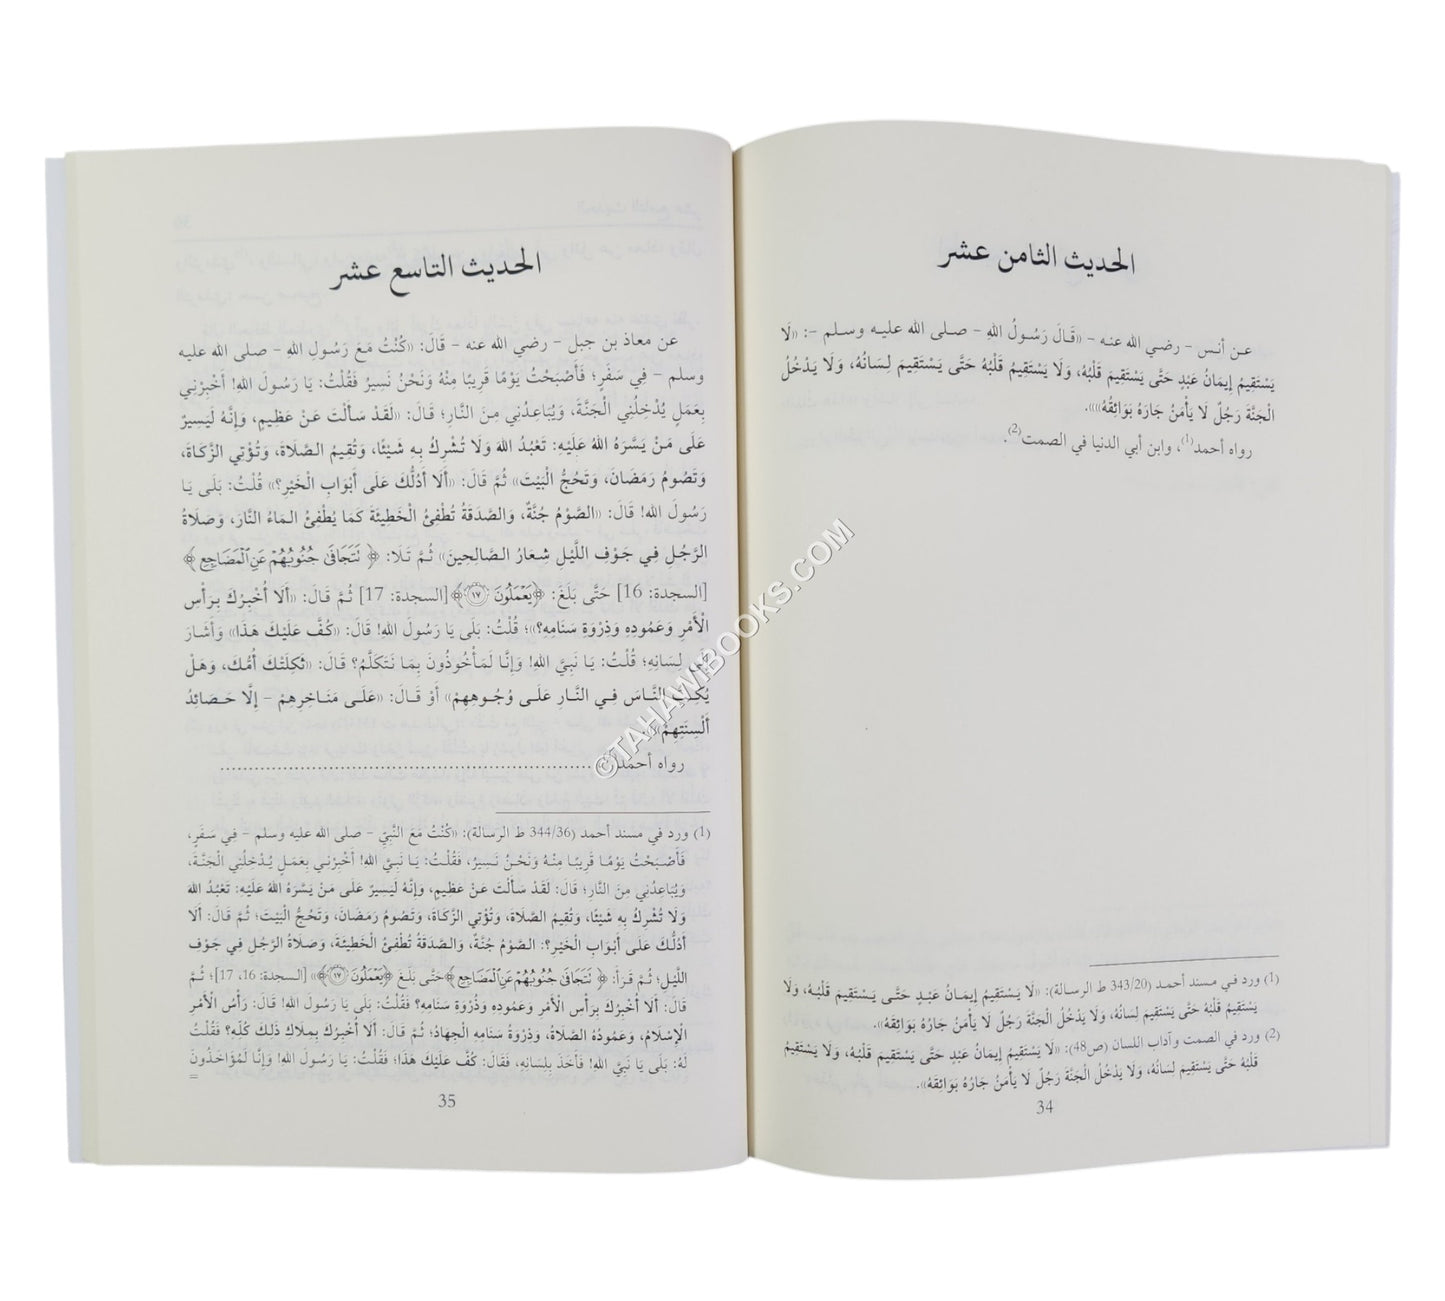 الحديث الثامن عشر
عن أنس - رضي الله عنه - «قَالَ رَسُولُ اللهِ - صلى الله عليه وسلم -: «لَا
يَسْتَقِيمُ إِيمَانُ عَبْدٍ حَتَّى يَسْتَقِيمَ قَلْبُهُ، وَلَا يَسْتَقِيمُ قَلْبُهُ حَتَّى يَسْتَقِيمَ لِسَانُهُ، وَلَا يَدْخُلُ
الْجَنَّةَ رَجُلٌ لَا يَأْمَنُ جَارُهُ بَوَائِقُهُ»».
رواه أحمد(1)، وابن أبي الدنيا في الصمت(2).
(1) ورد في مسند أحمد (343/20 ط الرسالة): «لَا يَسْتَقِيمُ إِيمَانُ عَبْدٍ حَتَّى يَسْتَقِيمَ قَلْبُهُ، وَلَا
يَسْتَقِيمُ قَلْبُهُ حَتَّى يَسْتَقِيمَ لِسَانُهُ، وَلَا يَدْخُلُ الْجَنَّةَ رَجُلٌ لَا يَأْمَنُ جَارُهُ بَوَائِقَهُ».
(2) ورد في الصمت وآداب اللسان (ص48): «لَا يَسْتَقِيمُ إِيمَانُ عَبْدٍ حَتَّى يَسْتَقِيمَ قَلْبُهُ، وَلَا يَسْتَقِيمُ
قَلْبُهُ حَتَّى يَسْتَقِيمَ لِسَانُهُ، وَلَا يَدْخُلُ الْجَنَّةَ رَجُلٌ لَا يَأْمَنُ جَارُهُ بَوَائِقَهُ».
34
الحديث التاسع عشر
عن معاذ بن جبل - رضي الله عنه - قَالَ: «كُنْتُ مَعَ رَسُولِ اللهِ - صلى الله عليه
وسلم - فِي سَفَرٍ؛ فَأَصْبَحْتُ يَوْمًا قَرِيبًا مِنْهُ وَنَحْنُ نَسِيرُ فَقُلْتُ: يَا رَسُولَ اللهِ! أَخْبِرْنِي
بِعَمَلٍ يُدْخِلُنِي الْجَنَّةَ، وَيُبَاعِدُنِي مِنَ النَّارِ؛ قَالَ: «لَقَدْ سَأَلْتَ عَنْ عَظِيمٍ، وَإِنَّهُ لَيَسِيرٌ
عَلَى مَنْ يَسَّرَهُ اللهُ عَلَيْهِ: تَعْبُدُ اللهَ وَلَا تُشْرِكُ بِهِ شَيْئًا، وَتُقِيمُ الصَّلَاةَ، وَتُؤْتِي الزَّكَاةَ،
وَتَصُومُ رَمَضَانَ، وَتَحُجُّ الْبَيْتَ» ثُمَّ قَالَ: «أَلَا أَدُلُّكَ عَلَى أَبْوَابِ الْخَيْرِ؟» قُلْتُ: بَلَى يَا
رَسُولَ اللهِ! قَالَ: «الصَّوْمُ جُنَّةٌ، وَالصَّدَقَةُ تُطْفِئُ الْخَطِيئَةَ كَمَا يُطْفِئُ الْمَاءُ النَّارَ، وَصَلَاةُ
الرَّجُلِ فِي جَوْفِ اللَّيْلِ شِعَارُ الصَّالِحِينَ» ثُمَّ تَلَا: ﴿ نَتَجَافَى جُنُوبُهُمْ عَنِ الْمَضَاجِعِ ﴾
[السجدة: 16] حَتَّى بَلَغَ: ﴿يَعْمَلُونَ ١٧﴾[السجدة: 17] ثُمَّ قَالَ: «أَلَا أُخْبِرُكَ بِرَأْسِ
الْأَمْرِ وَعَمُودِهِ وَذِرْوَةِ سَنَامِهِ؟»؛ قُلْتُ: بَلَى يَا رَسُولَ اللهِ! قَالَ: «كُفَّ عَلَيْكَ هَذَا» وَأَشَارَ
لِسَانِهِ؛ قُلْتُ: يَا نَبِيَّ اللهِ! وَإِنَّا لَمَأْخُوذُونَ بِمَا نَتَكَلَّمُ؟ قَالَ: «ثَكِلَتْكَ أُمُّكَ، وَهَلْ
يُكِبُّ النَّاسَ فِي النَّارِ عَلَى وُجُوهِهِمْ» أَوْ قَالَ: «عَلَى مَنَاخِرِهِمْ - إِلَّا حَصَائِدُ
أَلْسِنَتِهِمْ»».
رواه أحمد
(1) ورد في مسند أحمد (344/36 ط الرسالة): «كُنْتُ مَعَ النَّبِيِّ - صلى الله عليه وسلم - فِي سَفَرٍ،
فَأَصْبَحْتُ يَوْمًا قَرِيبًا مِنْهُ وَنَحْنُ نَسِيرُ، فَقُلْتُ: يَا نَبِيَّ اللهِ! أَخْبِرْنِي بِعَمَلٍ يُدْخِلُنِي الْجَنَّةَ،
وَيُبَاعِدُنِي مِنَ النَّارِ؛ قَالَ: لَقَدْ سَأَلْتَ عَنْ عَظِيمٍ، وَإِنَّهُ لَيَسِيرٌ عَلَى مَنْ يَسَّرَهُ اللهُ عَلَيْهِ: تَعْبُدُ اللهَ
وَلَا تُشْرِكُ بِهِ شَيْئًا، وَتُقِيمُ الصَّلَاةَ، وَتُؤْتِي الزَّكَاةَ، وَتَصُومُ رَمَضَانَ، وَتَحُجُّ الْبَيْتَ؛ ثُمَّ قَالَ: أَلَا
أَدُلُّكَ عَلَى أَبْوَابِ الْخَيْرِ؟: الصَّوْمُ جُنَّةٌ، وَالصَّدَقَةُ تُطْفِئُ الْخَطِيئَةَ، وَصَلَاةُ الرَّجُلِ فِي جَوْفِ
اللَّيْلِ؛ ثُمَّ قَرَأَ: ﴿ نَتَجَافَى جُنُوبُهُمْ عَنِ الْمَضَاجِعِ﴾حَتَّى بَلَغَ ﴿يَعْمَلُونَ ١٧﴾» [السجدة: 16، 17]؛ ثُمَّ
قَالَ: أَلَا أُخْبِرُكَ بِرَأْسِ الْأَمْرِ وَعَمُودِهِ وَذُرْوَةِ سَنَامِهِ؟ فَقُلْتُ: بَلَى يَا رَسُولَ اللهِ! قَالَ: رَأْسُ الْأَمْرِ
الْإِسْلَامُ، وَعَمُودُهُ الصَّلَاةُ، وَذِرْوَةُ سَنَامِهِ الْجِهَادُ؛ ثُمَّ قَالَ: أَلَا أُخْبِرُكَ بِمِلَاكِ ذَلِكَ كُلِّهِ؟ فَقُلْتُ
لَهُ: بَلَى يَا نَبِيَّ اللهِ! فَأَخَذَ بِلِسَانِهِ، فَقَالَ: كُفَّ عَلَيْكَ هَذَا؛ فَقُلْتُ: يَا رَسُولَ اللهِ! وَإِنَّا لَمُؤَاخَذُونَ
=
35
©TAHAWIBOOKS.COM